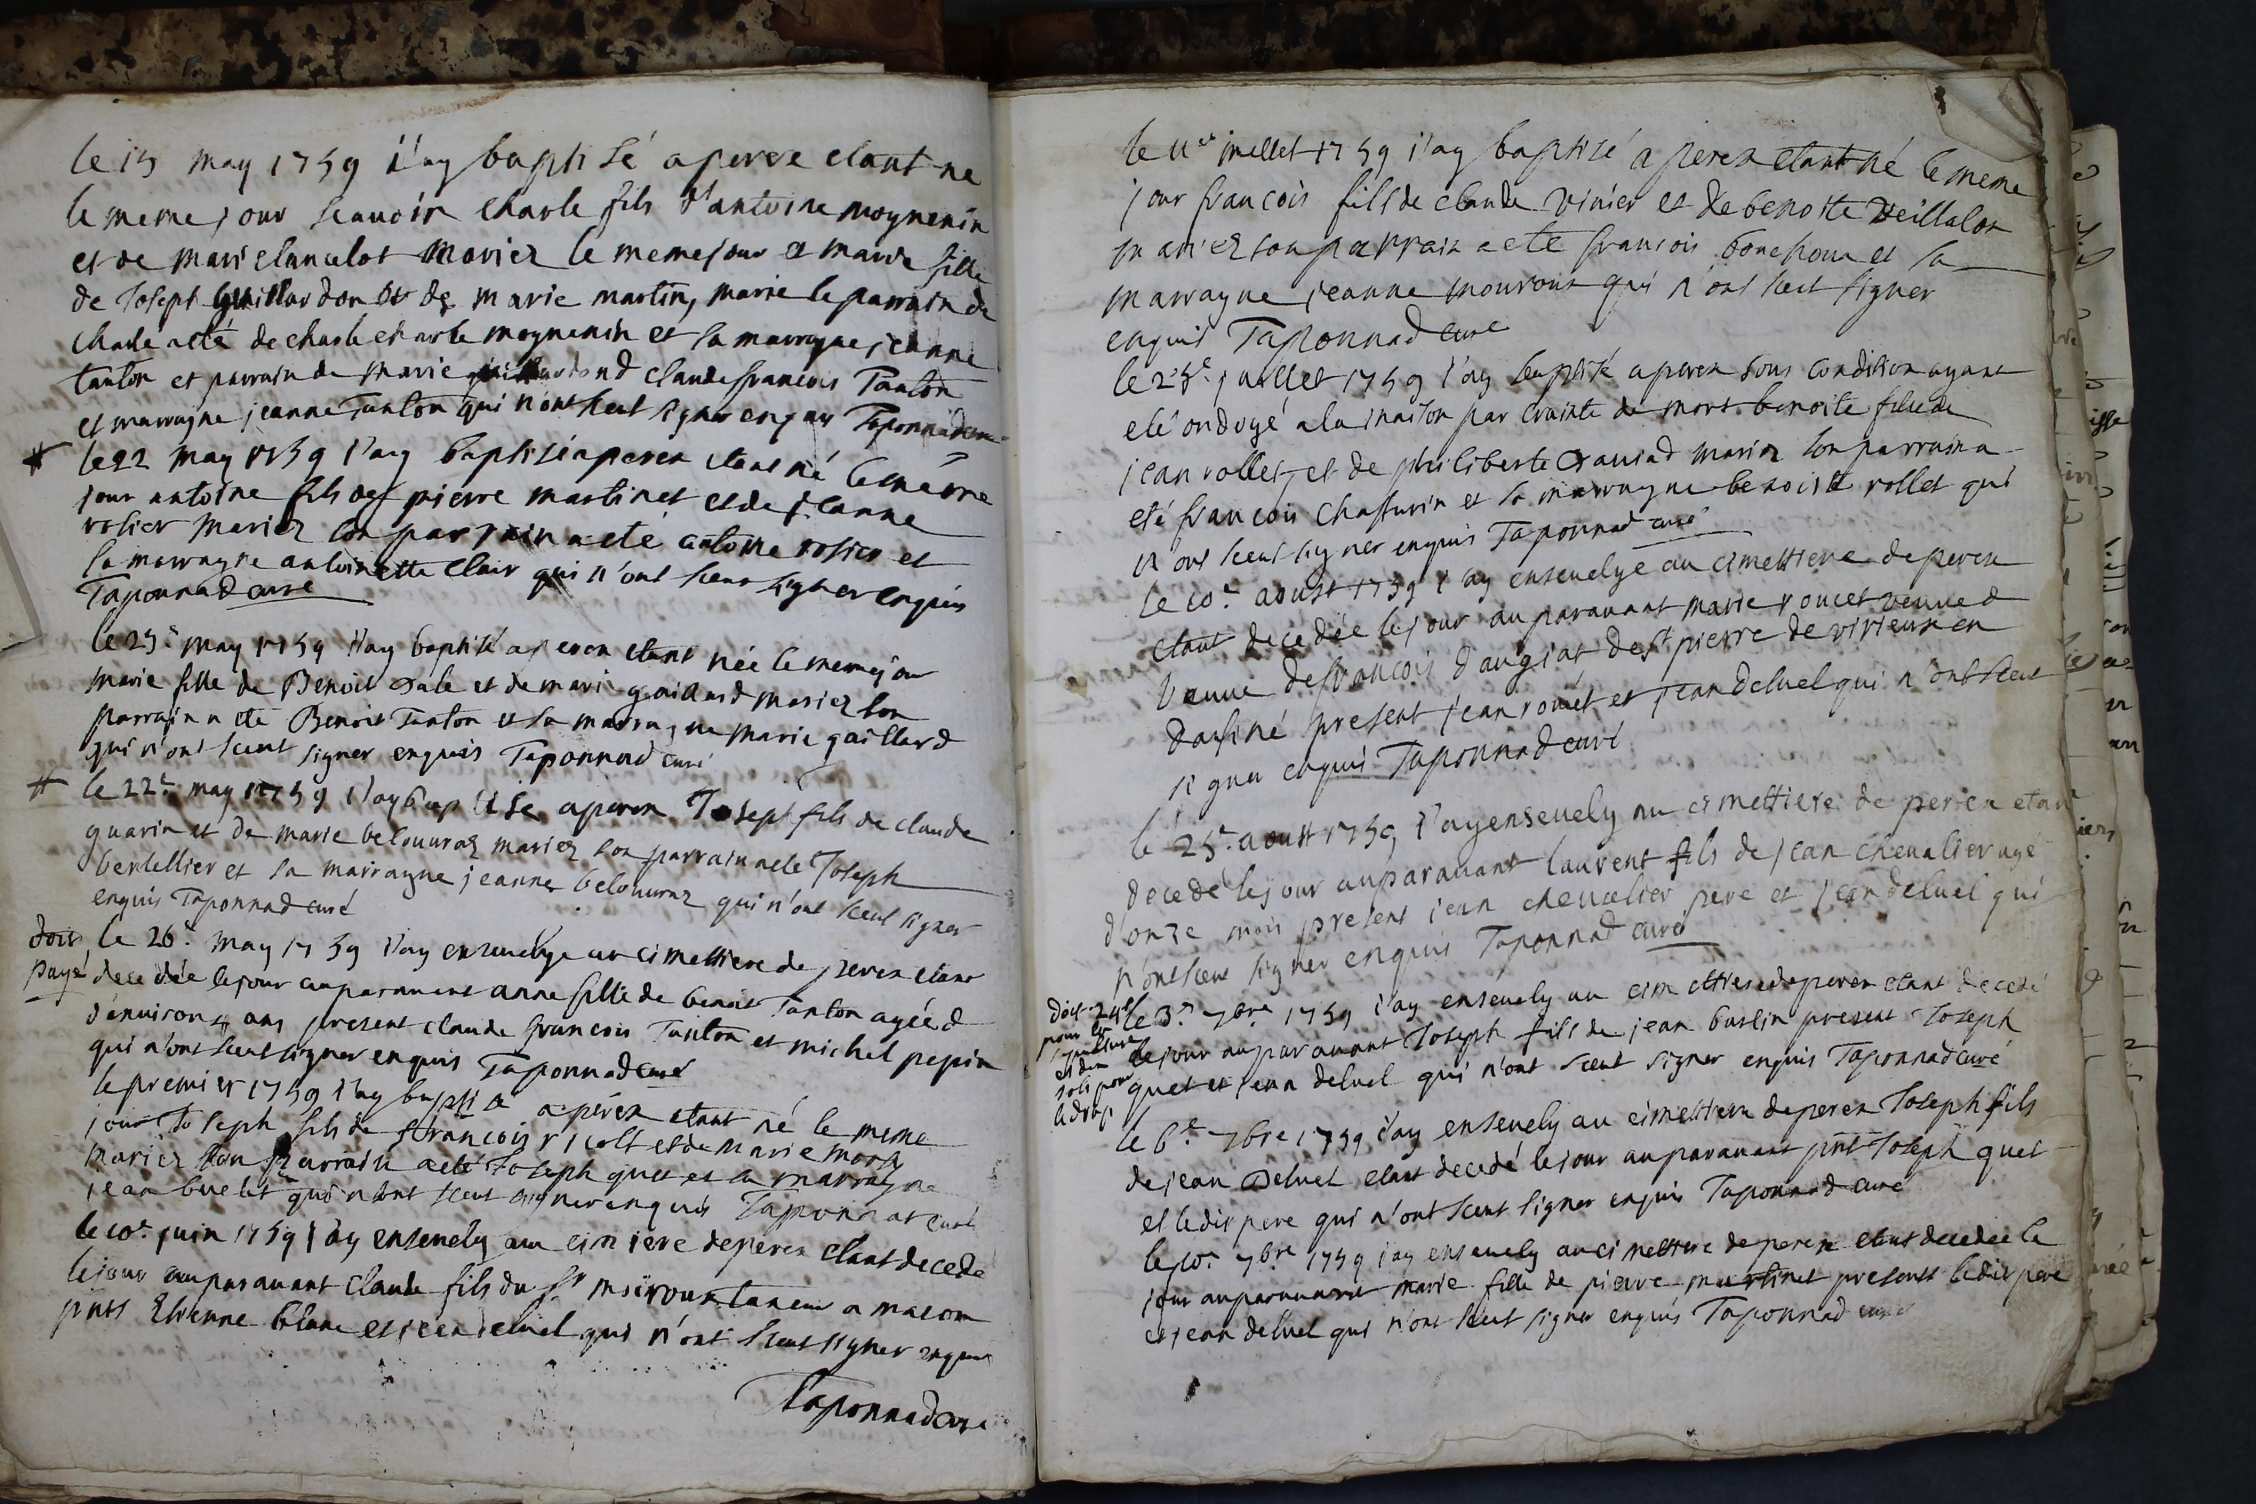 le 15 may 1759 i'ay baptisé a perex etant ne
le meme jour scauoir charle fils d'antoine moynenin
et de mari elancelot mariez le meme jour et marie fille
de Joseph guillardon et de marie martin, marie le parrain de
charle a eté de charle charle moynenin et sa marrayne jeanne
tanton et parrain de marie claude francois Tanton
et marrayne jeanne Tanton qui n'ont sceut signer enquis Taponnad curé
# le 22 may 1759 i'ay baptisé a perex etant né le meme
jour antoine fils de pierre martinet et de jeanne
rosier mariez son parrain a eté antoine rosier et
sa marrayne antoinette clair qui n'ont sceut signer enquis
Taponnad curé
le 25e may 1759 i'ay baptisé a perex etant née le meme jour
marie fille de Benoit Dale et de mari gaillard mariez son
parrain a eté Benoit Tanton et sa marrayne marie gaillard
qui n'ont sceut signer enquis Taponnad curé
# le 22e may 1759 i'ay baptisé a perex Joseph fils de claude
guarin et de marie belouuraz mariez son parrain a eté Joseph
bertellier et sa marrayne jeanne belouuraz qui n'ont sceut signer
enquis Taponnad curé
doit
payé
le 26e may 1759 i'ay enseuelye au cimettiere de perex etant
decedée le jour auparauant anne fille de benoit Tanton agée d
d'enuiron 4 ans present claude francois Tanton et michel pepin
qui n'ont sceut signer enquis Taponnad curé
le premier 1759 i'ay baptisé a pérex etant né le meme
jour Joseph fils de francois ricolt et de marie
mariez son parrain a eté Joseph quet et sa marrayne
jean buelet qui n'ont sceut signer enquis Taponnad curé
le 10e juin 1759 i'ay enseuely au cimiere de perex etant decede
le jour auparauant claude fils du Sr moiroux taneur a macon
pnts Etienne blanc et jean deluel qui n'ont sceut signer enquis
Taponnad curé
le 11e juillet 1759 i'ay baptisé a perex etant né le meme
jour francois fils de claude vinier et de benoite veillalot
mariez son parrain a eté francois bonchoux et sa
marrayne jeanne mouroux qui n'ont sceut signer
enquis Taponnad curé
le 25e juillet 1759 i'ay baptisé a perex sous condition ayant
eté ondoyé a la maison par crainte de mort benoite fille de
jean rollet et de philiberte mariez son parrain a
eté francois chasturin et sa marrayne benoiste rollet qui
n'ont sceut signer enquis Taponnad curé
le 10e aoust 1759 i'ay enseuelye au cimettiere de perex
etant decedée le jour auparauant marie roucet veuue d
veuue de francois daugiat de st pierre de virieux en
dafiné present jean romét et jean deluel qui n'ont sceut
signer enquis Taponnad curé
le 25e aoust 1759 i'ay enseuely au cimettiere de perex etan
decedé le jour auparauant laurent fils de jean cheualier agé
d'onze mois present jean cheualier pere et jean deluel qui
n'ont sceut signer enquis Taponnad curé
doit 24s
pour la
sepulture
et dix
sols pour
le drap
le 3e 7bre 1759 i'ay enseuely au cimettiere de perex etant decedé
le jour auparauant Joseph fils de jean burlin present Joseph
quet et jean deluel qui n'ont sceut signer enquis Taponnad curé
le 6e 7bre 1759 i'ay enseuely au cimettiere de perex Joseph fils
de jean Deluel etant decedé le jour auparauant pnt Joseph quet
et ledit pere qui n'ont sceut signer enquis Taponnad curé
le 10e 7bre 1759 i'ay enseuely au cimettiere de perex etant decedée le
jour auparauant marie fille de pierre martinet presents ledit pere
et jean deluel qui n'ont sceut signer enquis Taponnad curé